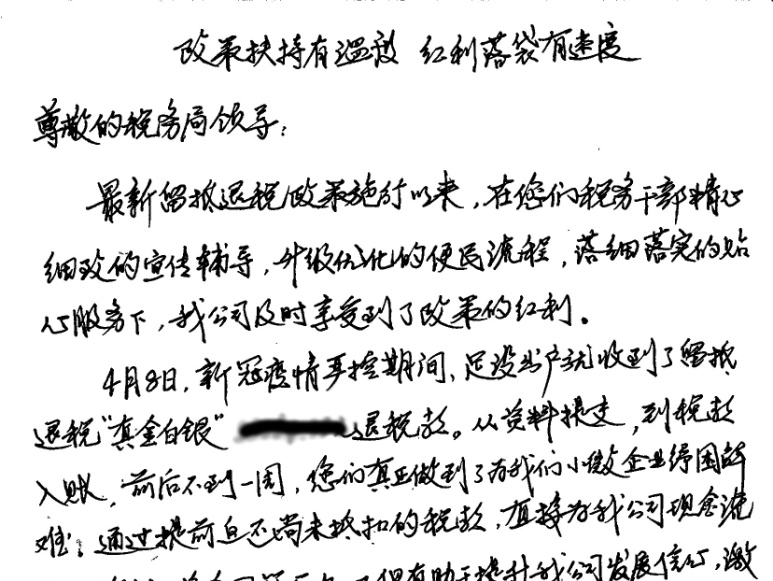 政策扶持有温效 红利落袋有速度
尊敬的税务局领导：
最新留抵退税政策施行以来，在您们税务干部精心
细致的宣传辅导，升级优化的便民流程，落细落实的贴
心服务下，我公司及时享受到了政策的红利。
4月8日，新冠疫情严控期间，足没出户就收到了留抵
退税“真金白银” 退税款。从资料提交，到税款
入账，前后不到一周，您们真正做到了为我们小微企业纾困解
难；通过提前返还尚未抵扣的税款，直接为我公司现金流
不仅有助于提升我公司发展信心，激